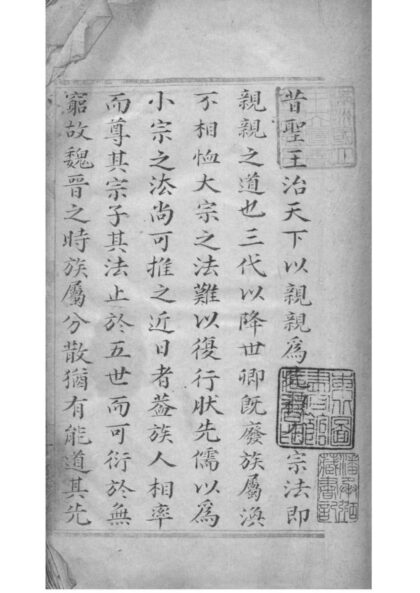 昔聖王治天下以親親爲宗法即
親親之道也三代以降世卿旣廢族屬渙
不相恤大宗之法難以復行狀先儒以爲
小宗之法尚可推之近日者葢族人相率
而尊其宗子其法止於五世而可衍於無
窮故魏晉之時族屬分散猶有能道其先